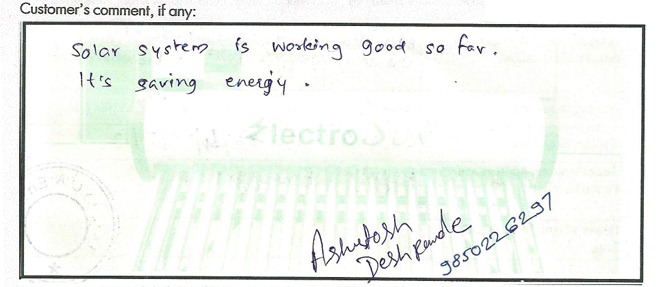 Customer's comment, if any:
Solar system is working good so far.
It's saving energy.
Ashutosh
Deshpande
9850226297